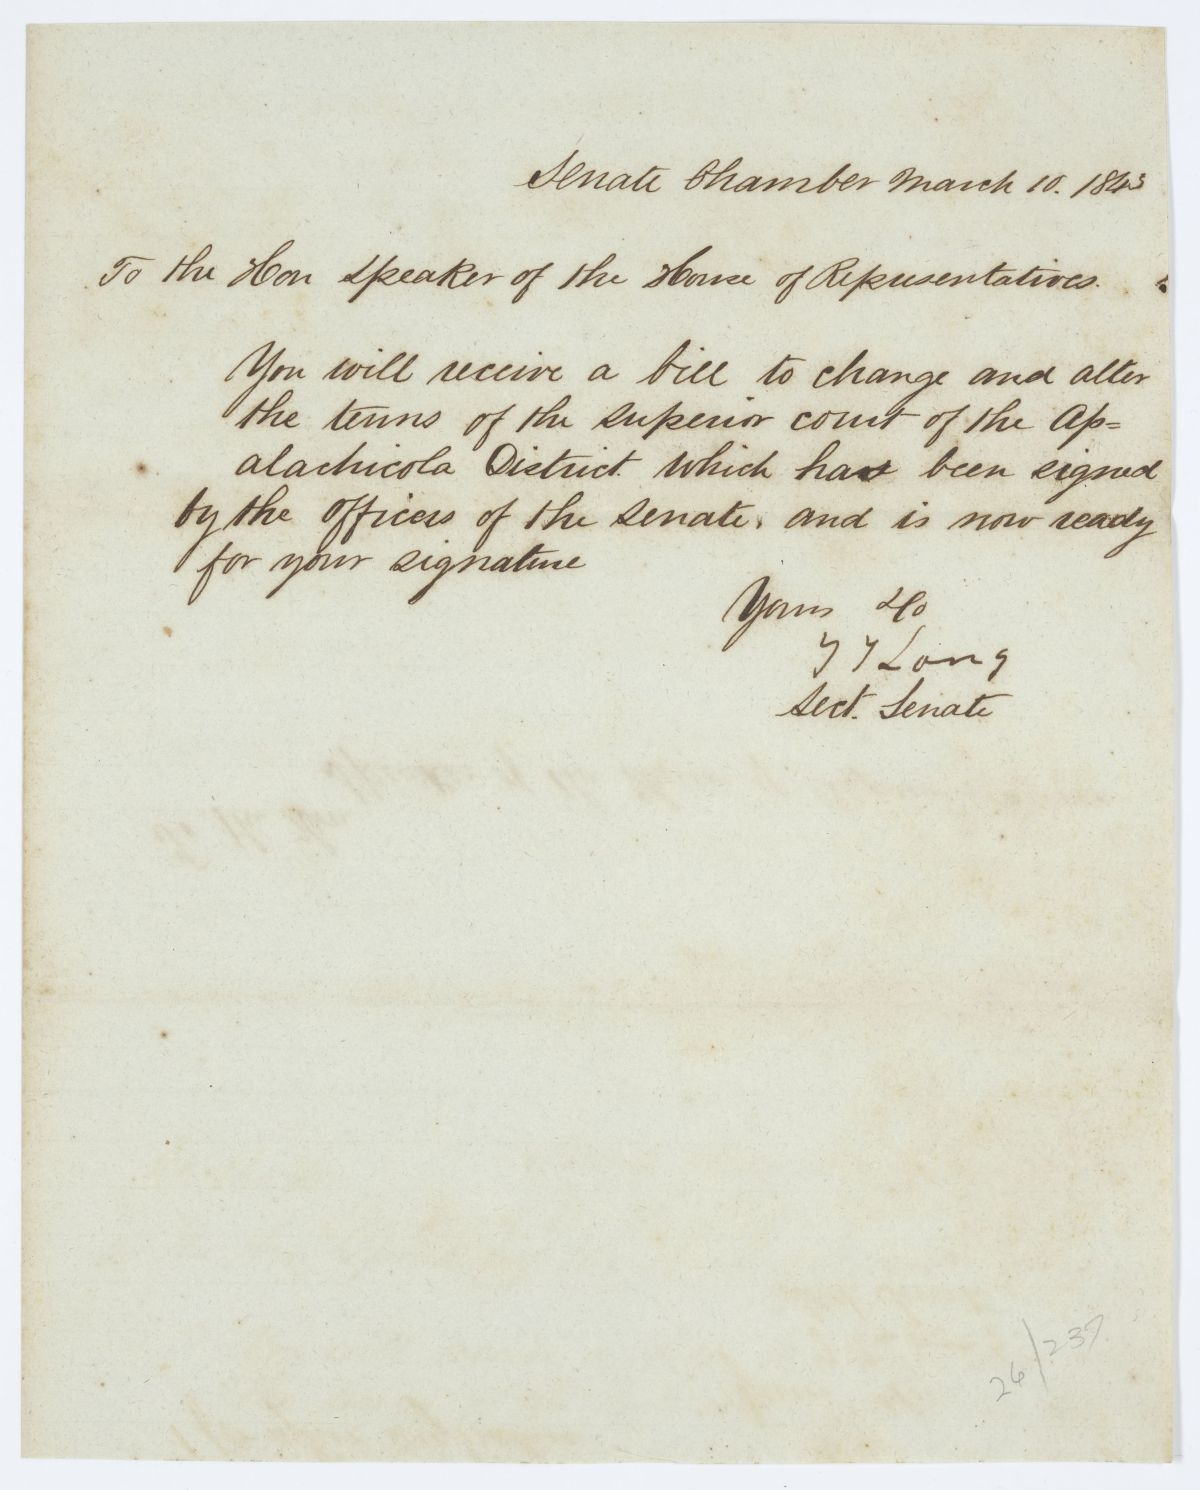 Senate Chamber March 10. 1843
To the Hon Speaker of the House of Representatives.
You will receive a bill to change and alter
the terms of the superior court of the Ap=
alachicola District. which has been signed
by the officers of the Senate. and is now ready
for your signature
Yours &c
T T Long
Sect. Senate
26/237